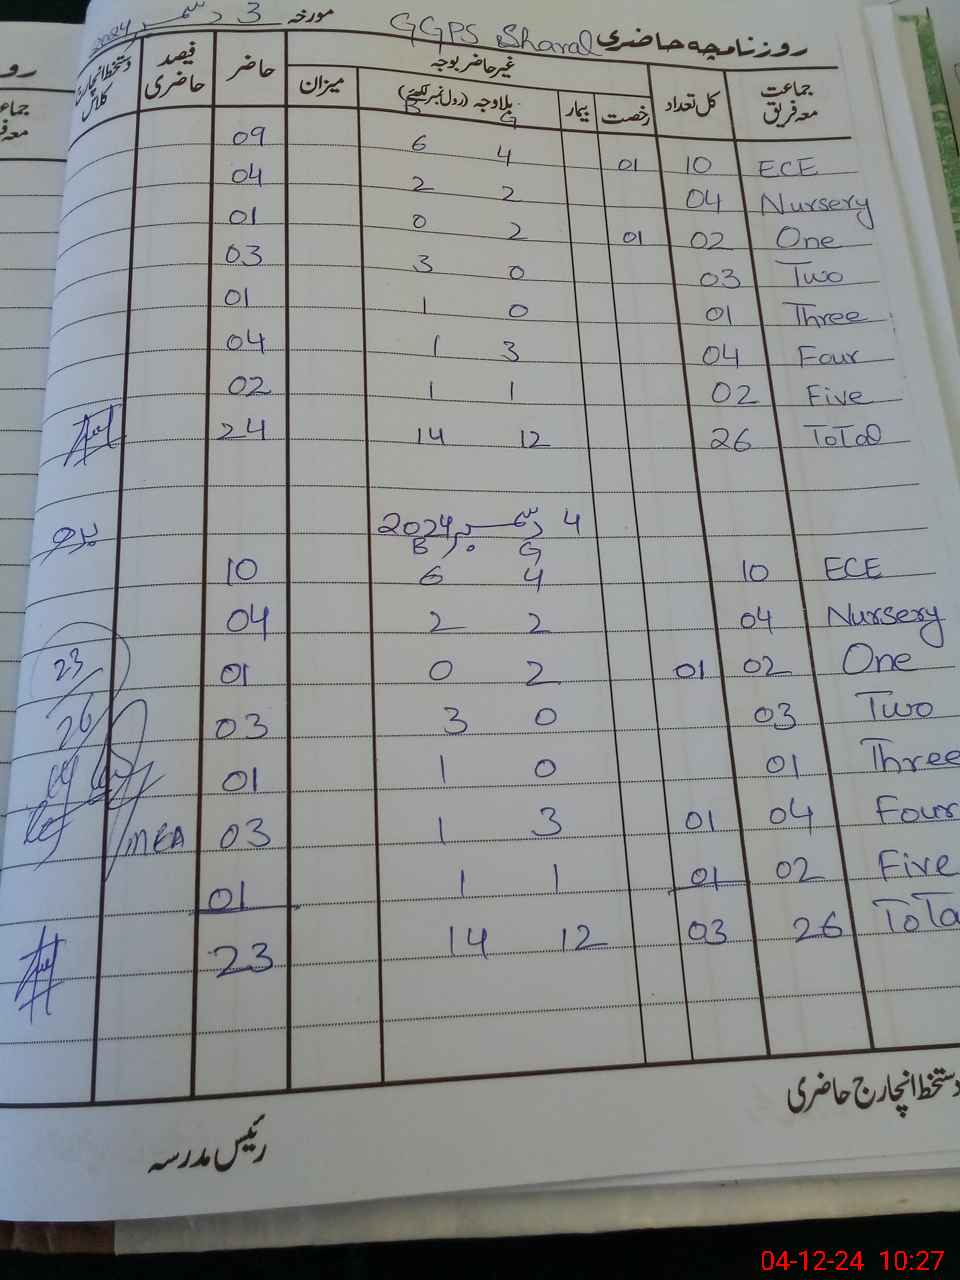 روزنامچہ حاضری GGPS Sharal مورخہ 3 دسمبر 2024
جماعت معہ فریق کل تعداد غیر حاضر بوجہ حاضر فیصد حاضری دستخط انچارج کلاس
رخصت بیمار بلاوجہ (رول نمبر لکھیئے) میزان
G B
ECE 10 01 4 6 09
Nursery 04 2 2 04
One 02 01 2 0 01
Two 03 0 3 03
Three 01 0 1 01
Four 04 3 1 04
Five 02 1 1 02
ToTal 26 12 14 24
4 دسمبر 2024
G B
ECE 10 4 6 10
Nursery 04 2 2 04
One 02 01 2 0 01 23
Two 03 0 3 03 26
Three 01 0 1 01
Four 04 01 3 1 03 MEA
Five 02 01 1 1 01
ToTa 26 03 12 14 23
دستخط انچارج حاضری
رئیس مدرسہ
رو
جماع
معہ فر
04-12-24 10:27